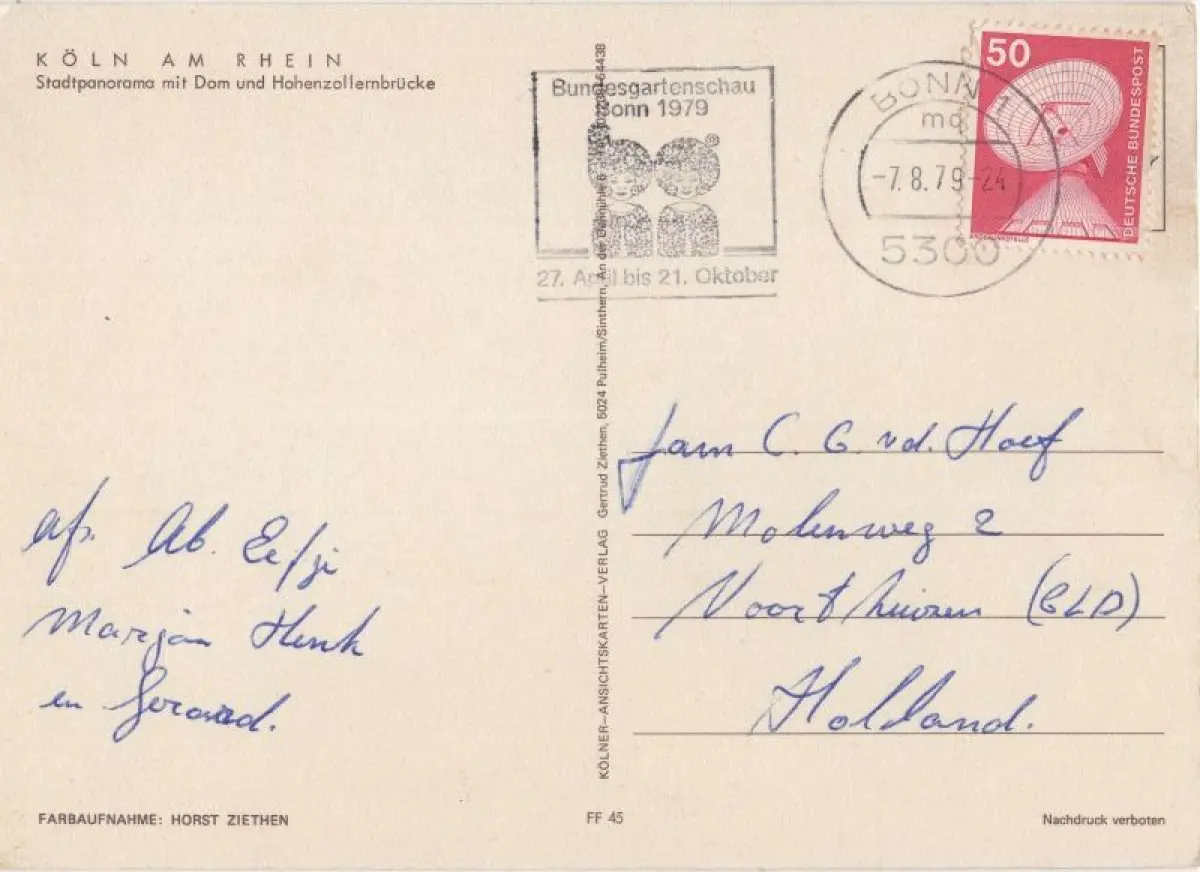 KÖLN AM RHEIN
Stadtpanorama mit Dom und Hohenzollernbrücke
Bundesgartenschau
Bonn 1979
27. April bis 21. Oktober
BONN 1
mc
-7.8.79-24
5300
50
DEUTSCHE BUNDESPOST
KÖLNER-ANSICHTSKARTEN-VERLAG Gertrud Ziethen, 5024 Pulheim/Sinthern, An der
Fam C. G. v.d. Hoef
Molenweg 2
Voorthuizen (GLD)
Holland.
afz. Ab. Eefje
Marjan Henk
en Gerard.
FARBAUFNAHME: HORST ZIETHEN
FF 45
Nachdruck verboten